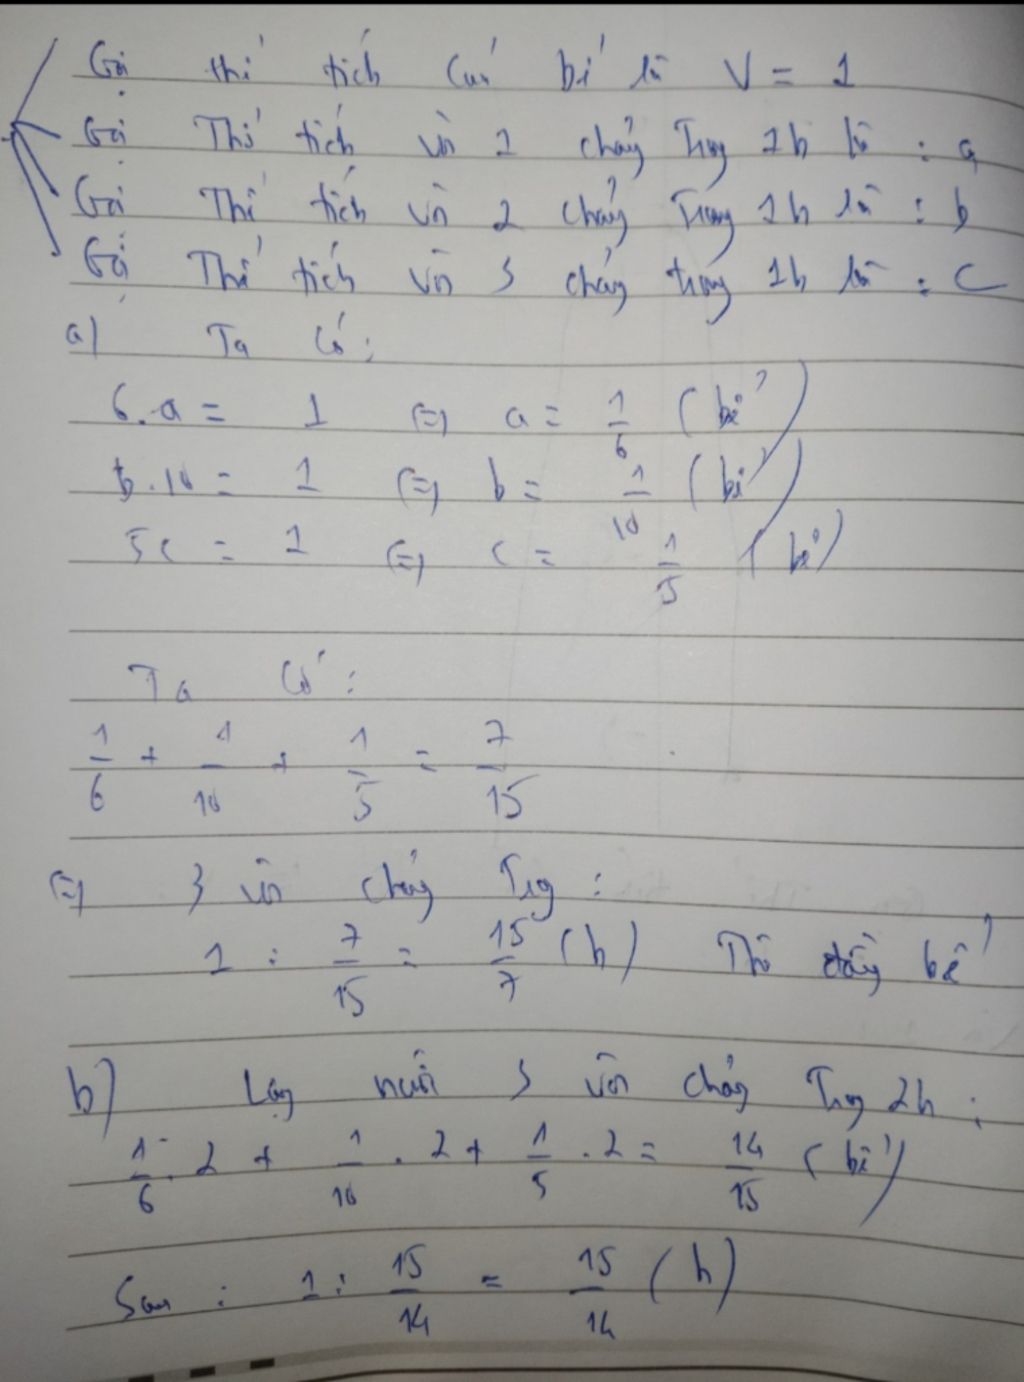 Gọi thể tích của bể là V = 1
Gọi Thể tích vòi 1 chảy Trong 1h là : a
Gọi Thể tích vòi 2 chảy Trong 1h là : b
Gọi Thể tích vòi 3 chảy trong 1h là : C
a) Ta có :
6.a = 1 (=) a = 1/6 (bể)
b.10 = 1 (=) b = 1/10 (bể)
5c = 1 (=) c = 1/5 (bể)
Ta có :
1/6 + 1/10 + 1/5 = 7/15
(=) 3 vòi chảy Trong :
1 : 7/15 = 15/7 (h) Thì đầy bể
b) Lượng nước 3 vòi chảy Trong 2h :
1/6 . 2 + 1/10 . 2 + 1/5 . 2 = 14/15 (bể)
Sau : 1 : 15/14 = 15/14 (h)